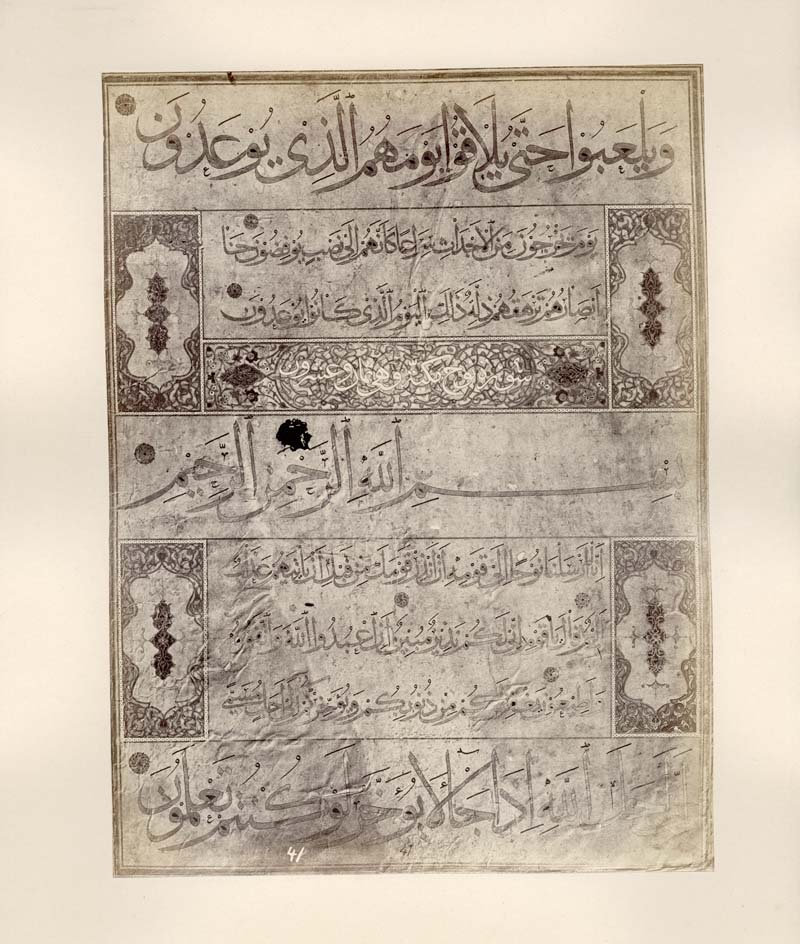 وَيَلْعَبُوا حَتَّى يُلَاقُوا يَوْمَهُمُ الَّذِي يُوعَدُونَ
يوم يخرجون من الاجداث سراعا كانهم الى نصب يوفضون
ابصارهم ترهقهم ذلة ذلك اليوم الذي كانوا يوعدون
سورة نوح مكية وهي وعشرون
بِسْمِ اللَّهِ الرَّحْمَنِ الرَّحِيمِ
انا ارسلنا نوحا الى قومه ان انذر قومك من قبل ان ياتيهم عذاب
اليم قال يا قوم اني لكم نذير مبين ان اعبدوا الله واتقوه
واطيعون يغفر لكم من ذنوبكم ويؤخركم الى اجل مسمى
ان اجل الله اذا جاء لا يؤخر لو كنتم تعلمون
41